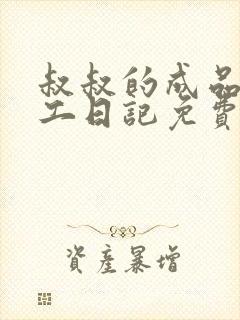 叔叔的成品
工日記免費
資産暴增